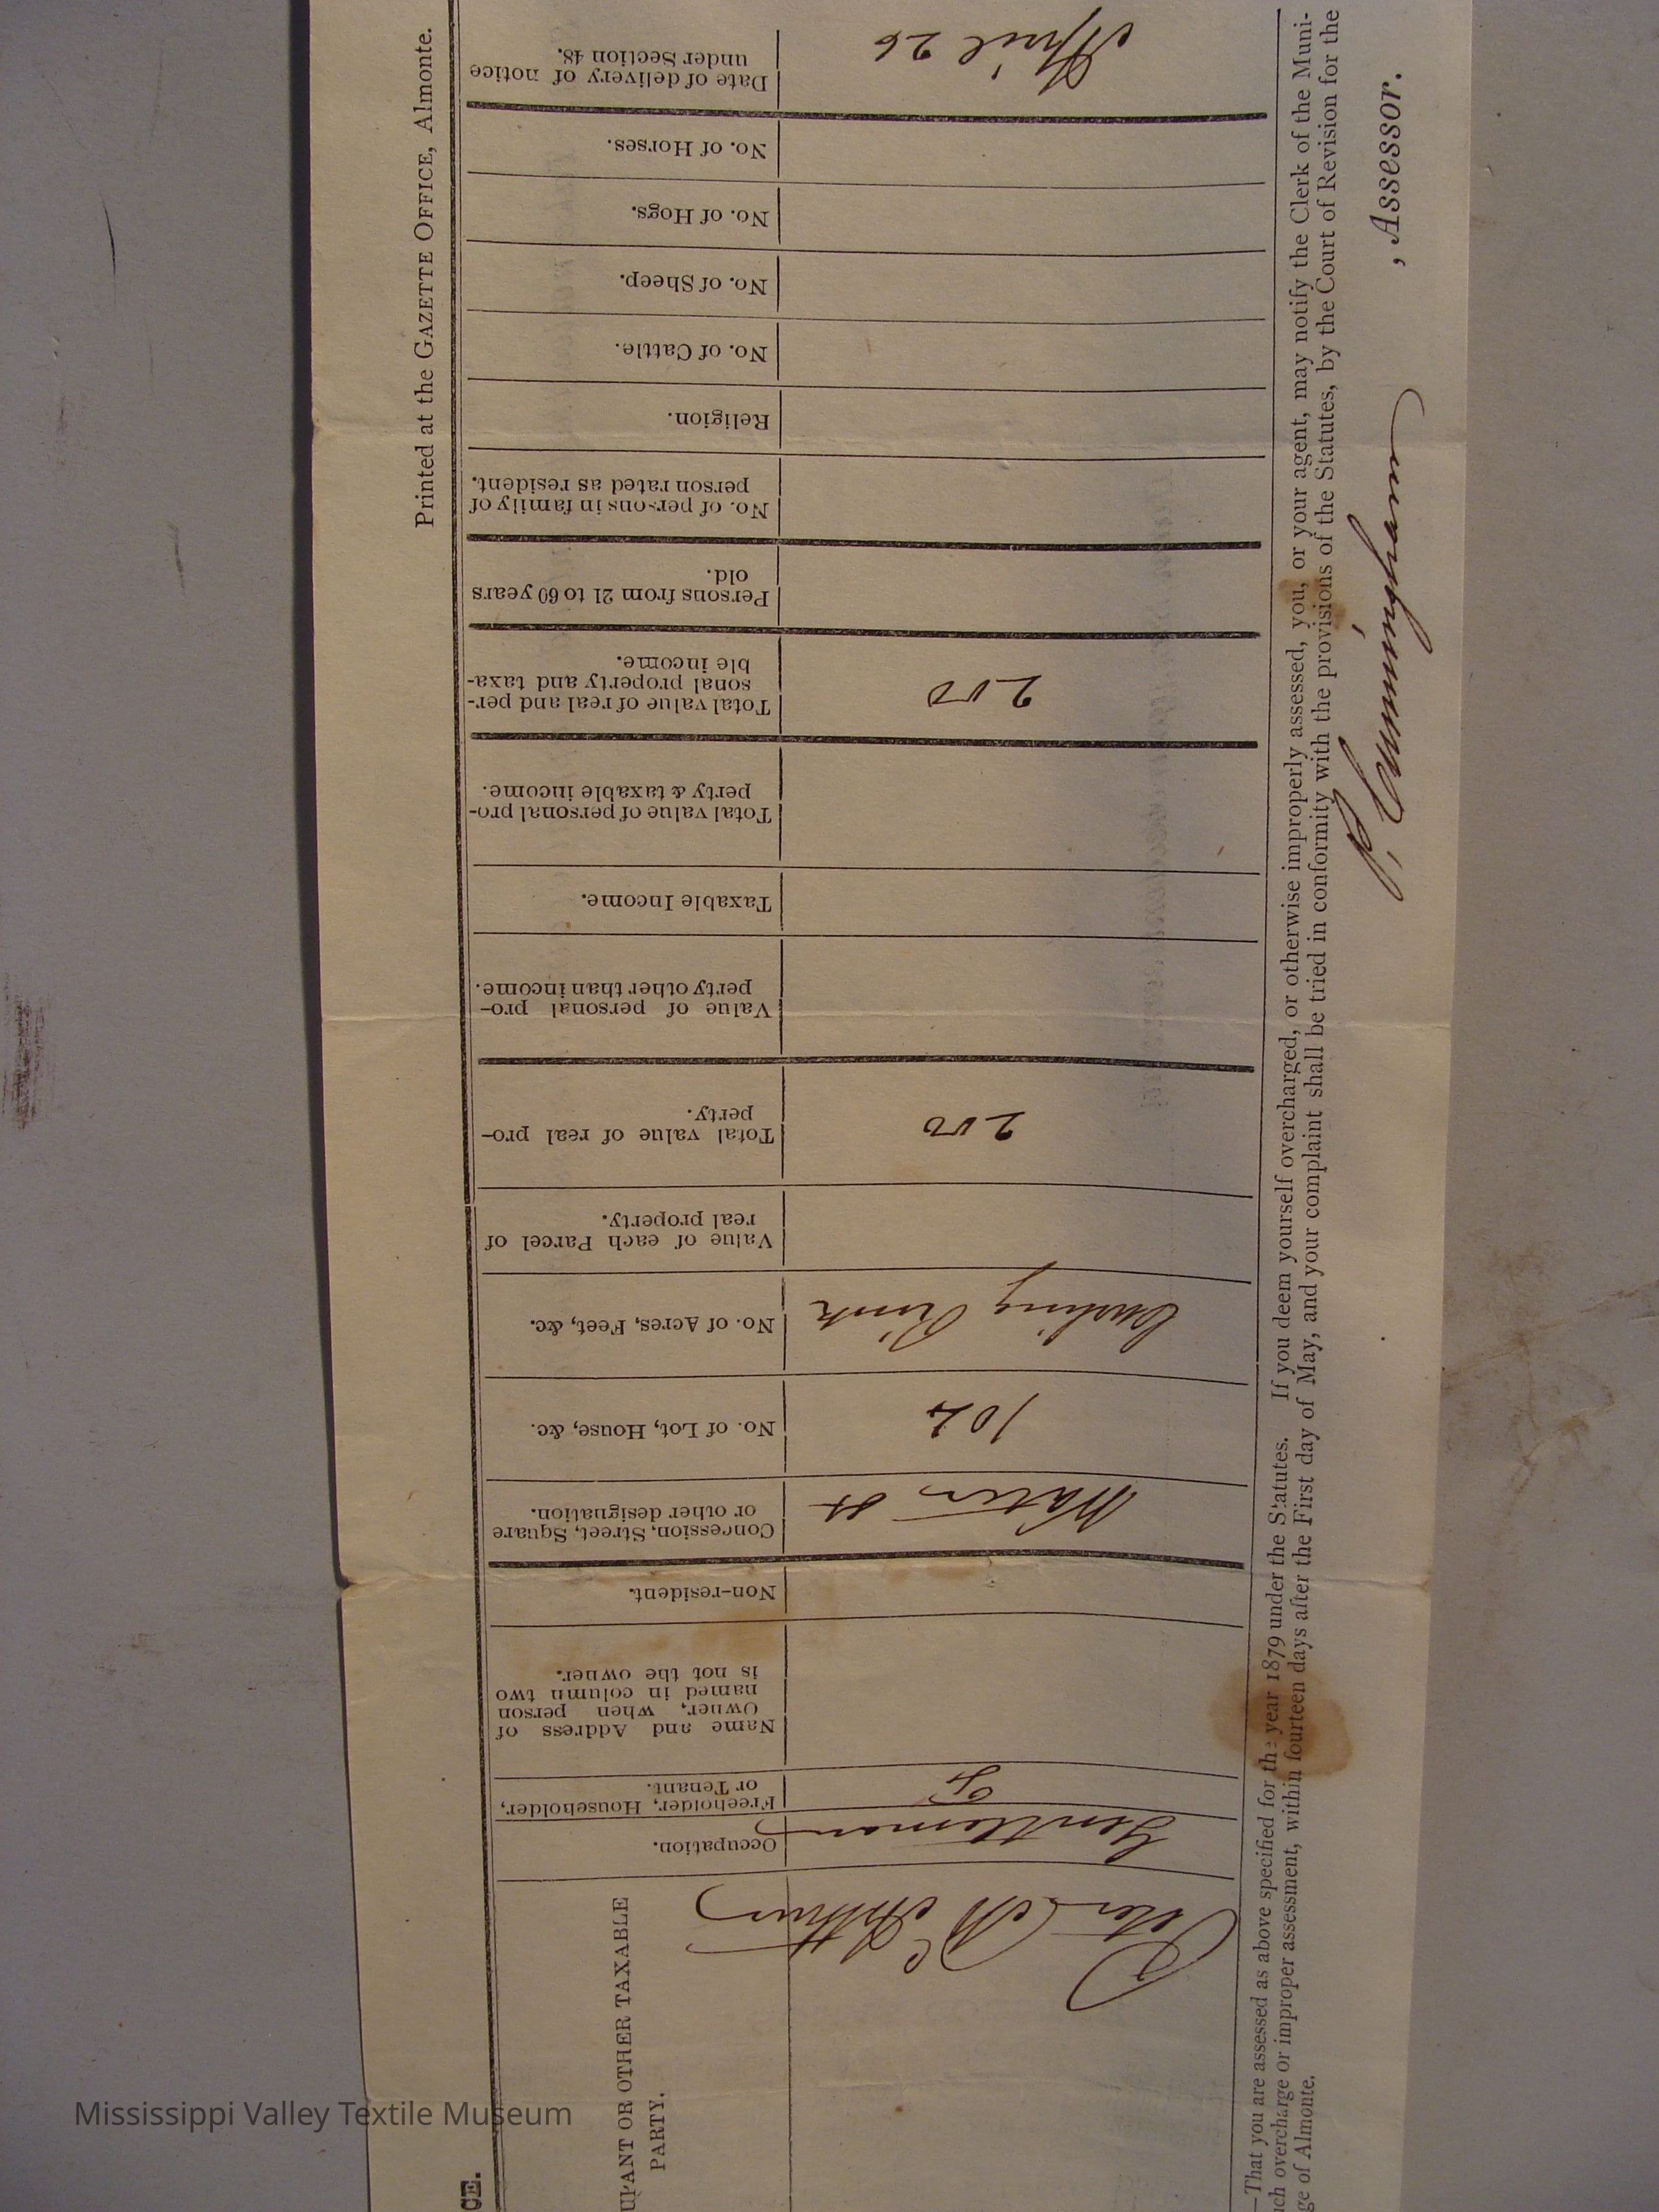 CE.
Printed at the GAZETTE OFFICE, Almonte.
UPANT OR OTHER TAXABLE
PARTY.
Occupation.
Freeholder, Householder,
or Tenant.
Name and Address of
Owner, when person
named in column two
is not the owner.
Non-resident.
Concession, Street, Square
or other designation.
No. of Lot, House, &c.
No. of Acres, Feet, &c.
Value of each Parcel of
real property.
Total value of real pro-
perty.
Value of personal pro-
perty other than income.
Taxable Income.
Total value of personal pro-
perty & taxable income.
Total value of real and per-
sonal property and taxa-
ble income.
Persons from 21 to 60 years
old.
No. of persons in family of
person rated as resident.
Religion.
No. of Cattle.
No. of Sheep.
No. of Hogs.
No. of Horses.
Date of delivery of notice
under Section 48.
Peter McArthur
Gentleman
F
Water St
Curling Rink
200
200
April 26
—That you are assessed as above specified for the year 1879 under the Statutes. If you deem yourself overcharged, or otherwise improperly assessed, you, or your agent, may notify the Clerk of the Muni-
ch overcharge or improper assessment, within fourteen days after the First day of May, and your complaint shall be tried in conformity with the provisions of the Statutes, by the Court of Revision for the
ge of Almonte.
, Assessor.
Mississippi Valley Textile Museum